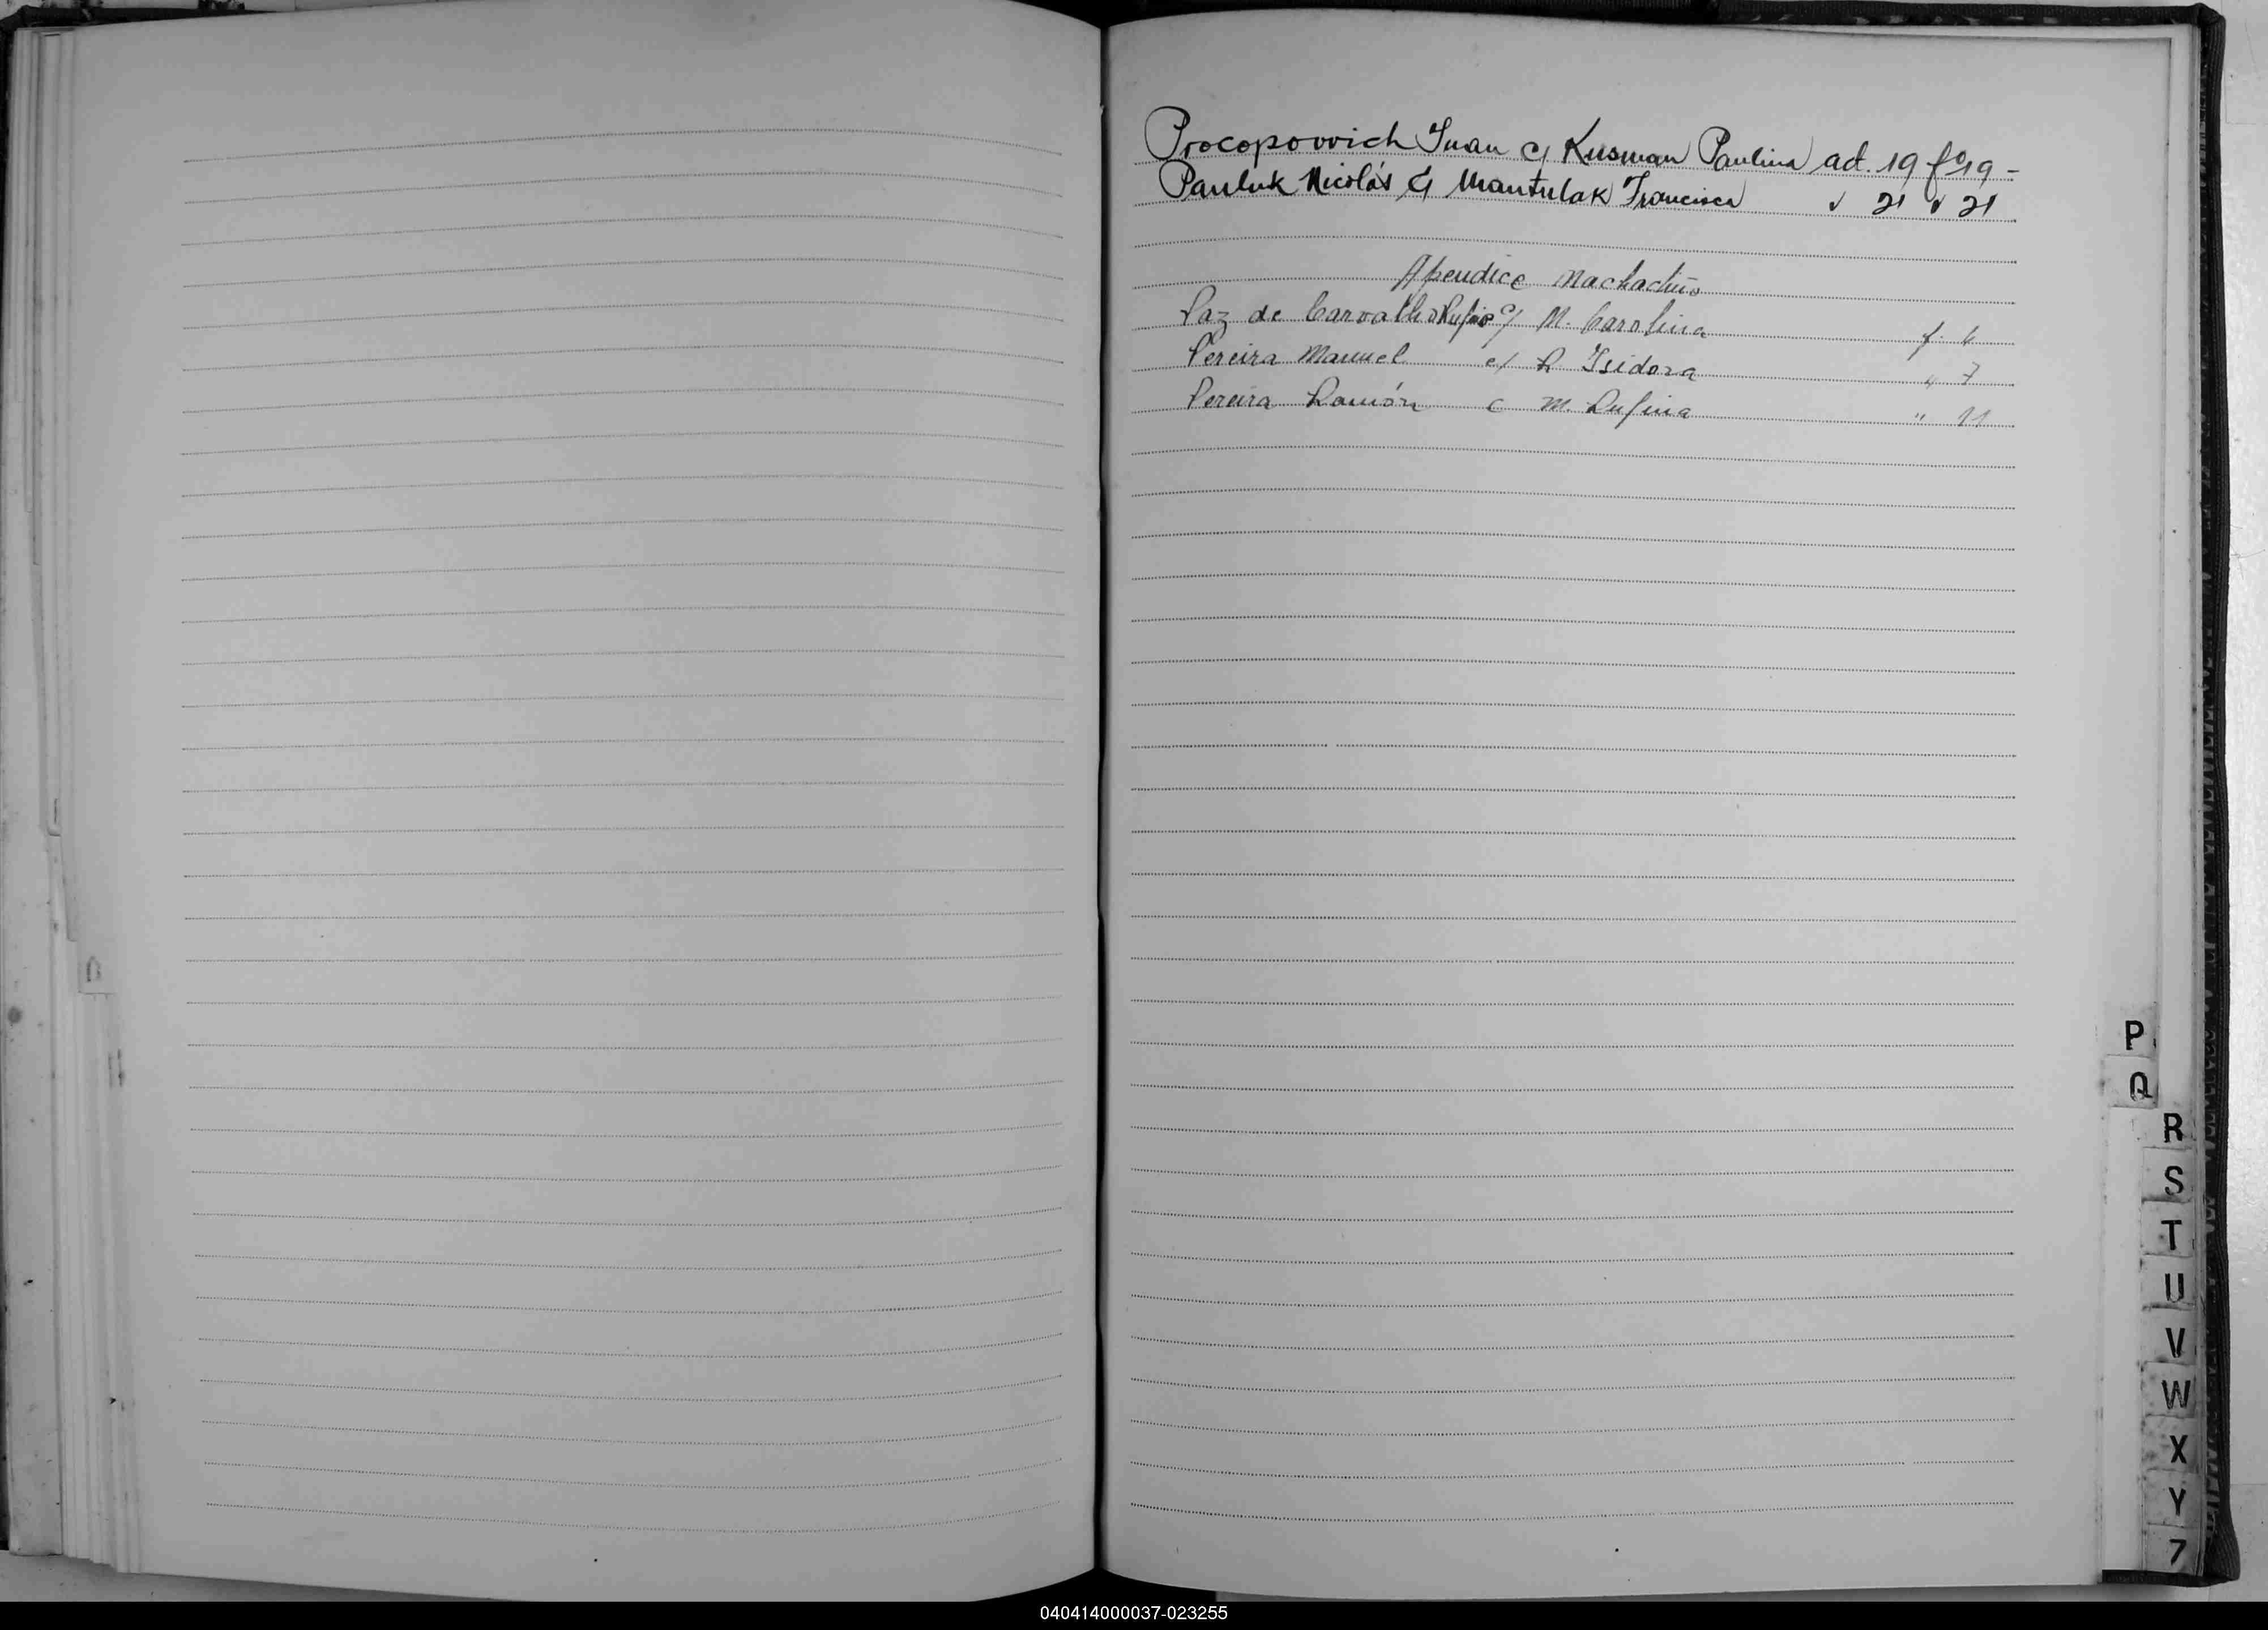 Procopovvich Juan c/ Kusman Paulina act. 19 fº 19 -
Pauluk Nicolás c/ Mantulak Francisca " 21 " 21
Apendice Machachiño
Paz de Carvalho Rufino c/ M. Carolina f. 4
Pereira Manuel c/ R. Isidora " 7
Pereira Ramón c M. Rufina " 11
P
Q
R
S
T
U
V
W
X
Y
Z
040414000037-023255